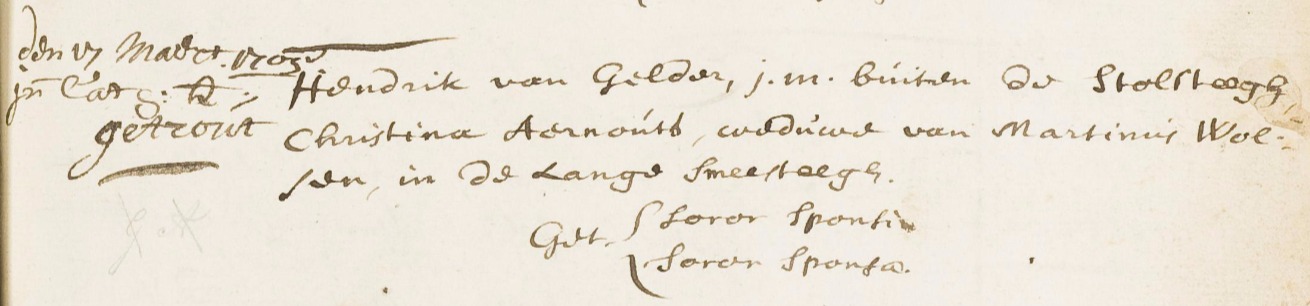 den 17 Maert. 1703
jn Cath: K:
getrout
Hendrik van Gelder, j.m. buiten de Stolsteegh,
Christina Aernouts, weduwe van Martinus Wol-
sen, in de Lange Smeesteegh.
Get. Soror Sponsi
Soror Sponsa.